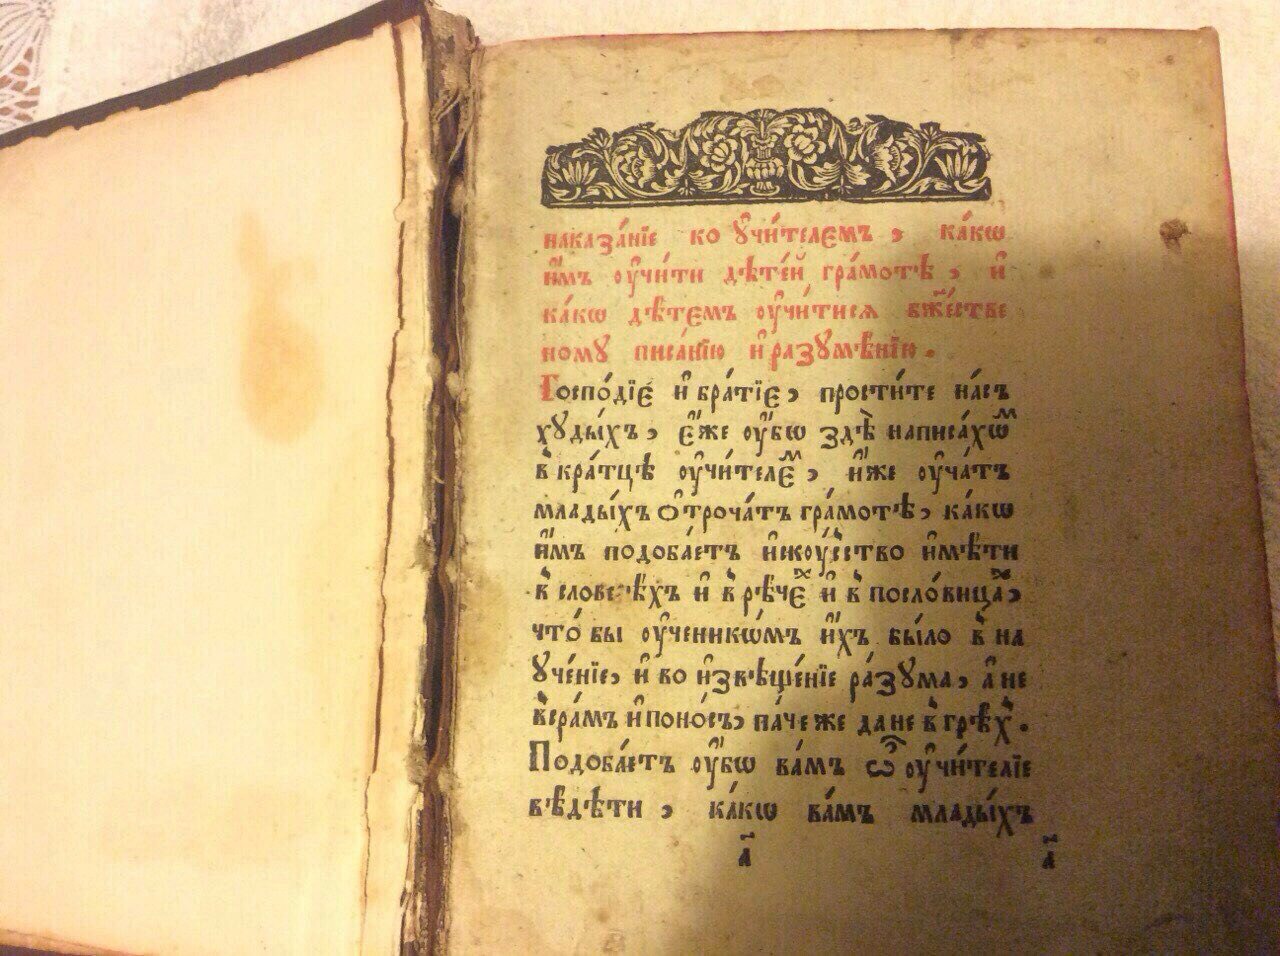 наказа́нїе ко ᲂу҆чи́телємъ, ка́кѡ
и҆̀мъ ᲂу҆чи́ти дѣте́й гра́мотѣ, и҆
ка́кѡ дѣ́тємъ ᲂу҆чи́тисѧ бж҃е́стве
ному писа́нїю и҆ разꙋмѣ́нїю.
Госпо́дїє и҆ бра́тїє, прости́те на́съ
хꙋды́хъ, є҆́же ᲂу҆́бѡ здѣ̀ написа́хѡⷨ
в кра́тцѣ ᲂу҆чи́телєⷨ, и҆́же ᲂу҆ча́тъ
млады́хъ ѻ҆троча́тъ гра́мотѣ, ка́кѡ
и҆̀мъ подоба́етъ и҆скᲂу́съство и҆мѣ́ти
в словесѣ́хъ и҆ в рѣ́чєⷯ и҆ в посло́вицаⷯ,
что́ бы ᲂу҆ченикѡ́мъ и҆́хъ бы́ло в на
ꙋче́нїе, и҆ во и҆звѣще́нїе ра́зꙋма, а҆ не
в сра́мъ и҆ поно́съ, па́че же да не в грѣ́х.
Подоба́етъ ᲂу҆́бѡ ва́мъ ѽ ᲂу҆чи́телїе
вѣ́дѣти, ка́кѡ ва́мъ млады́хъ
а҃ а҃